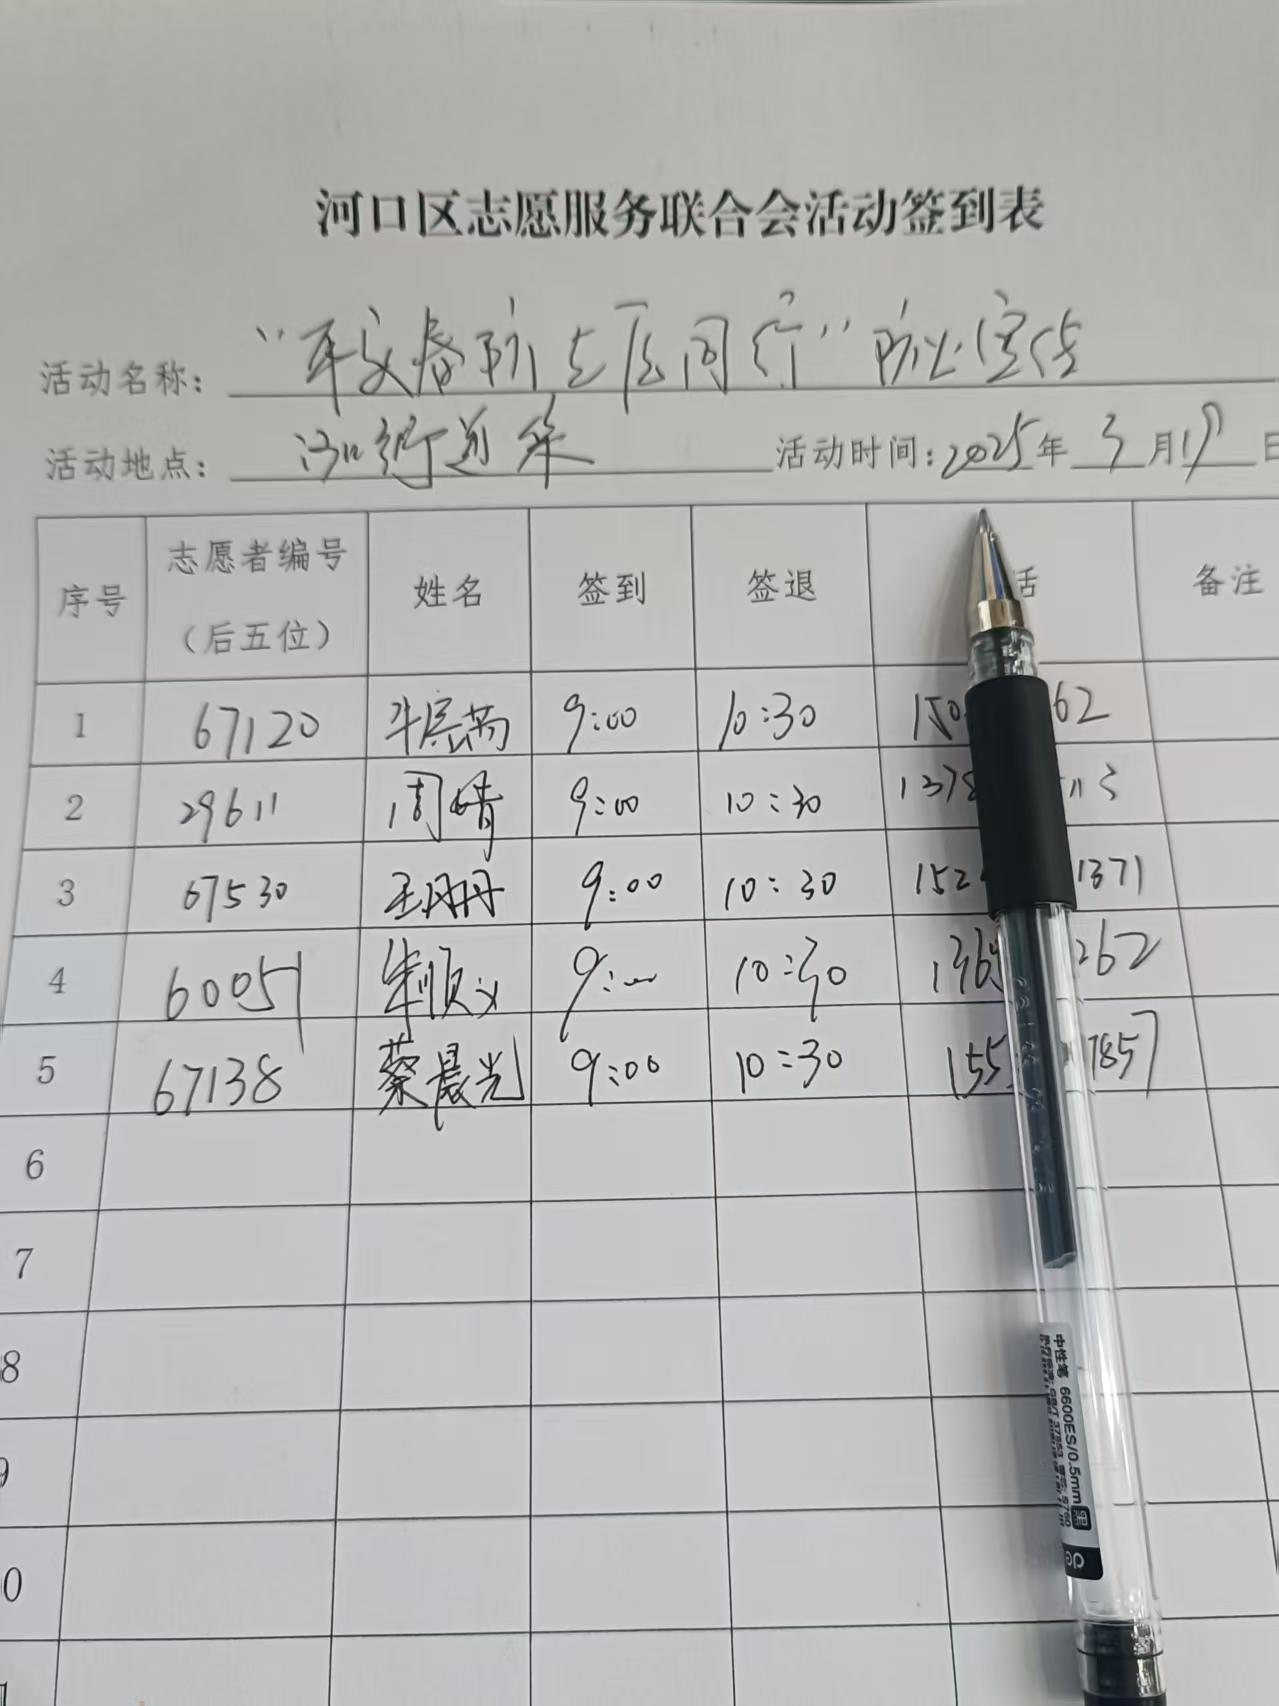 河口区志愿服务联合会活动签到表
活动名称: "平安春防 与 同行" 防火宣传
活动地点: 河口街道 活动时间: 2025年 3月19日
序号 志愿者编号（后五位） 姓名 签到 签退 话 备注
1 67120 9:00 10:30 150 62
2 29611 周晴 9:00 10:30 1378 113
3 67530 王丹丹 9:00 10:30 152 1371
4 60051 朱顺义 9:00 10:30 1369 262
5 67138 蔡晨光 9:00 10:30 155 7857
6
7
8
9
0
中性笔 6600ES/0.5mm 黑